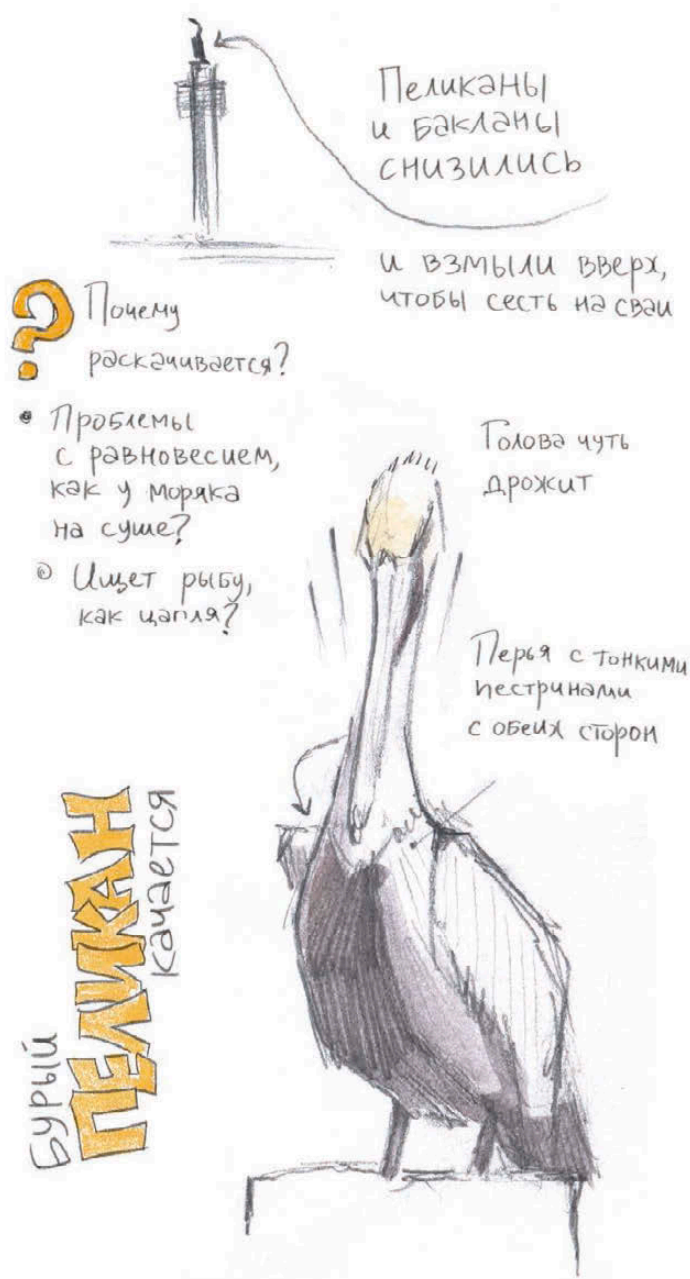 Пеликаны
и бакланы
снизились
и взмыли вверх,
чтобы сесть на сваи
?
Почему
раскачивается?
• Проблемы
с равновесием,
как у моряка
на суше?
• Ищет рыбу,
как цапля?
Голова чуть
дрожит
Перья с тонкими
пестринами
с обеих сторон
Бурый
ПЕЛИКАН
качается